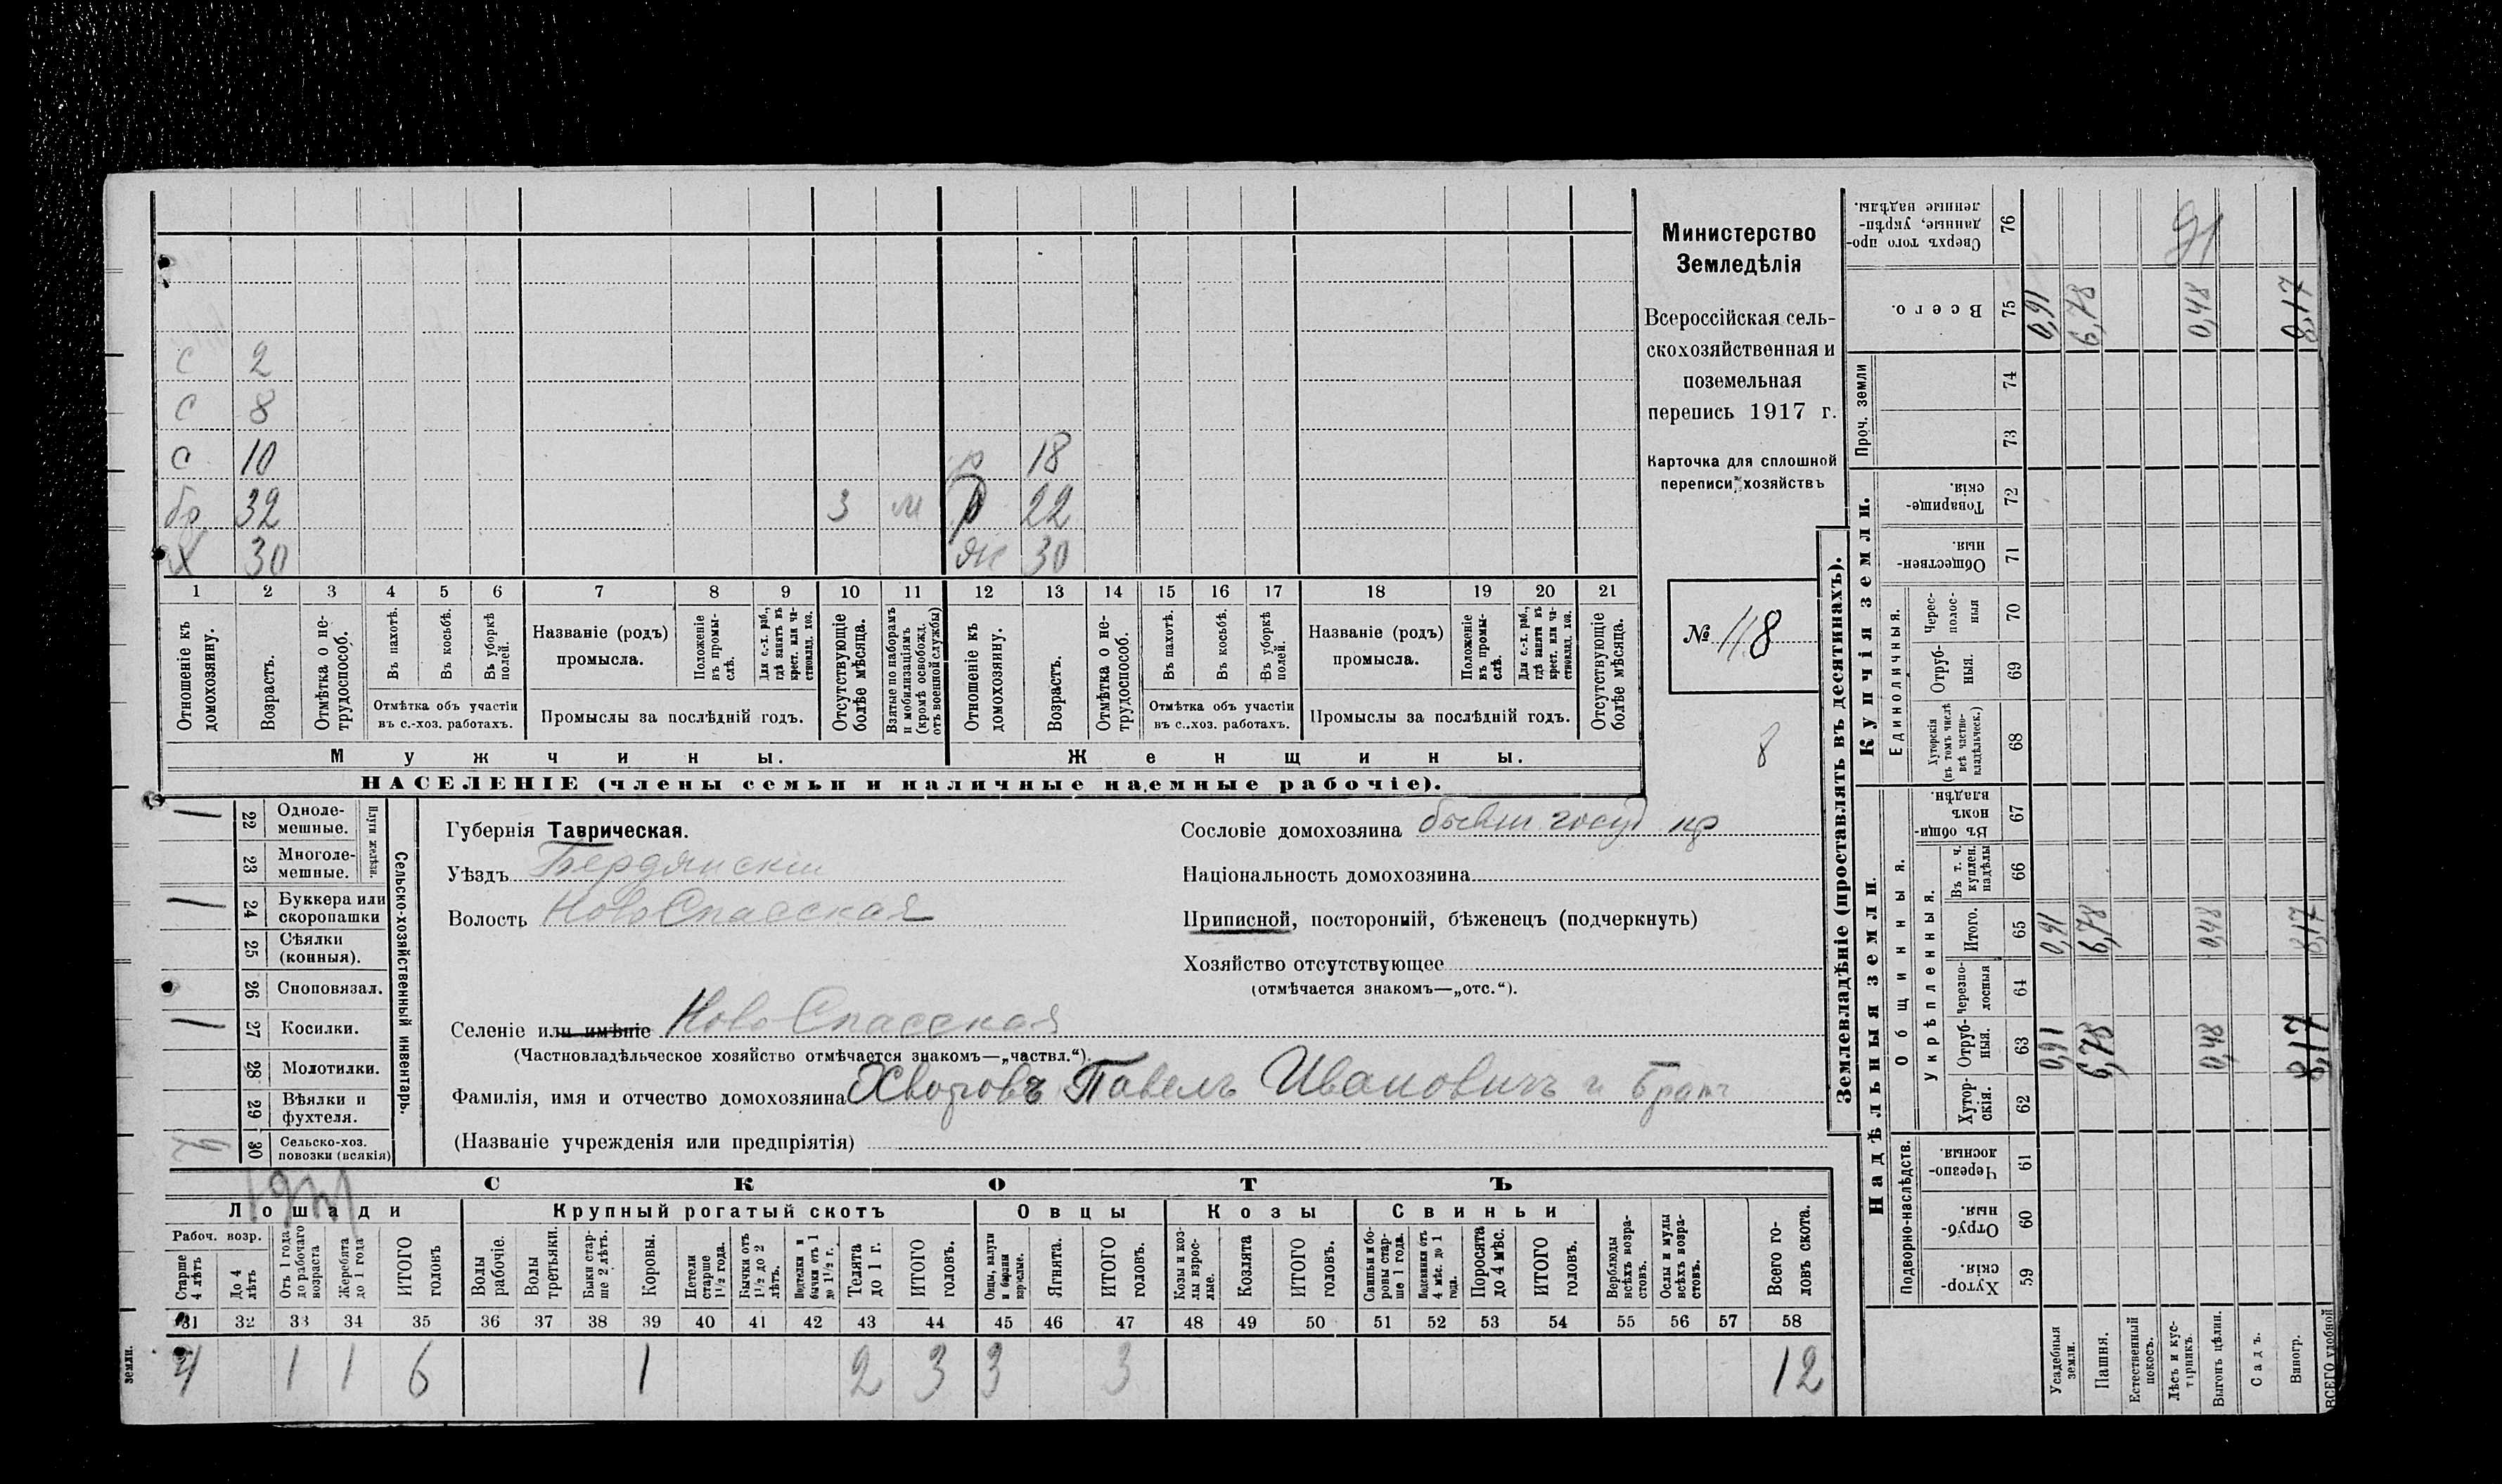 Министерство
Земледѣлія
Всероссійская сель-
скохозяйственная и
поземельная
перепись 1917 г.
Карточка для сплошной
переписи хозяйствъ
№ 118
8
с 2
с 8
с 10 18
бр 32 3 м р 22
х 30 ж 30
1 2 3 4 5 6 7 8 9 10 11 12 13 14 15 16 17 18 19 20 21
Отношеніе къ домохозяину.
Возрастъ.
Отмѣтка о не-трудоспособ.
Въ пахотѣ.
Въ косьбѣ.
Въ уборкѣ полей.
Отмѣтка объ участіи въ с.-хоз. работахъ.
Названіе (родъ) промысла.
Положеніе въ промы-слѣ.
Для с.-х. раб., гдѣ занятъ въ крест. или ча-стновлад. хоз.
Промыслы за послѣдній годъ.
Отсутствующіе болѣе мѣсяца.
Взятые по наборамъ и мобилизаціямъ (кромѣ освобожд. отъ военной службы)
Отношеніе къ домохозяину.
Возрастъ.
Отмѣтка о не-трудоспособ.
Въ пахотѣ.
Въ косьбѣ.
Въ уборкѣ полей.
Отмѣтка объ участіи въ с.-хоз. работахъ.
Названіе (родъ) промысла.
Положеніе въ промы-слѣ.
Для с.-х. раб., гдѣ занята въ крест. или ча-стновлад. хоз.
Промыслы за послѣдній годъ.
Отсутствующіе болѣе мѣсяца.
Мужчины. Женщины.
НАСЕЛЕНІЕ (члены семьи и наличные наемные рабочіе).
22 Одноле-мешные.
23 Многоле-мешные.
Плуги желѣзн.
24 Буккера или скоропашки
25 Сѣялки (конныя).
26 Сноповязал.
27 Косилки.
28 Молотилки.
29 Вѣялки и фухтеля.
30 Сельско-хоз. повозки (всякія)
Сельско-хозяйственный инвентарь.
Губернія Таврическая.
Уѣздъ Бердянскій
Волость НовоСпасская
Сословіе домохозяина бывш. госуд. кр
Національность домохозяина
Приписной, посторонній, бѣженецъ (подчеркнуть)
Хозяйство отсутствующее
(отмѣчается знакомъ—„отс.“).
Селеніе или имѣніе Ново Спасская
(Частновладѣльческое хозяйство отмѣчается знакомъ—„частвл.“).
Фамилія, имя и отчество домохозяина Хворовъ Павелъ Ивановичъ и брат
(Названіе учрежденія или предпріятія)
СКОТЪ
Лошади Крупный рогатый скотъ Овцы Козы Свиньи
Рабоч. возр.
Старше 4 лѣтъ
До 4 лѣтъ
Отъ 1 года до рабочаго возраста
Жеребята до 1 года
ИТОГО головъ
Волы рабочіе.
Волы третьяки.
Быки стар-ше 2 лѣтъ.
Коровы.
Нетели старше 1½ года.
Бычки отъ 1½ до 2 лѣтъ.
Подтелки и бычки отъ 1 до 1½ г.
Телята до 1 г.
ИТОГО головъ.
Овцы, валухи и бараны взрослые.
Ягнята.
ИТОГО головъ.
Козы и коз-лы взрос-лые.
Козлята
ИТОГО головъ.
Свиньи и бо-ровы стар-ше 1 года.
Подсвинки отъ 4 мѣс. до 1 года.
Поросята до 4 мѣс.
ИТОГО головъ.
Верблюды всѣхъ возра-стовъ.
Ослы и мулы всѣхъ возра-стовъ.
Всего го-ловъ скота.
31 32 33 34 35 36 37 38 39 40 41 42 43 44 45 46 47 48 49 50 51 52 53 54 55 56 57 58
4 1 1 6 1 2 3 3 3 12
земли.
Землевладѣніе (проставлять въ десятинахъ).
Купчія земли.
Надѣльныя земли.
Сверхъ того про-данные, укрѣп-ленные надѣлы. 76
Всего. 75 0,91 6,78 0,48 8,17
Проч. земли 74 73
Товарище-скія. 72
Обществен-ныя. 71
Единоличныя.
Черес-полос-ныя 70
Отруб-ныя. 69
Хуторскія (въ томъ числѣ всѣ частно-владѣльческ.) 68
Общинныя.
Въ общин-номъ владѣн. 67
Укрѣпленныя.
Въ т. ч. куплен. надѣлы 66
Итого. 65 0,91 6,78 0,48 8,17
Черезпо-лосныя 64
Отруб-ныя. 63 0,91 6,78 0,48 8,17
Хутор-скія. 62
Подворно-наслѣдств.
Черезпо-лосныя. 61
Отруб-ныя. 60
Хутор-скія. 59
Усадебныя земли.
Пашня.
Естественный покосъ.
Лѣсъ и кус-тарникъ.
Выгонъ цѣлин.
Садъ.
Виногр.
ВСЕГО удобной